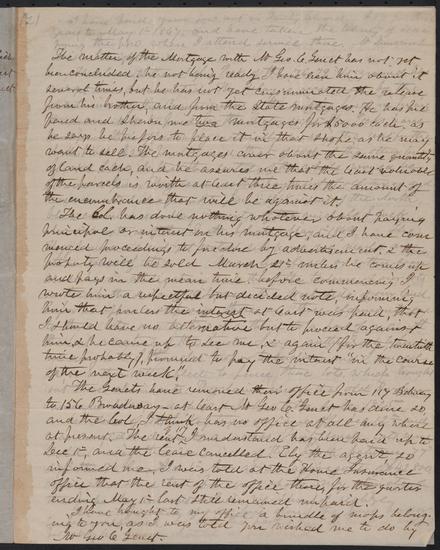 The matter of the Mortgage with Mr Geo. C. Genet has not yet
been concluded: he not being ready. I have seen him about it
several times, but he has not yet consummated the release
from his brother, and from the State mortgages. He has pre
pared and shown me two mortgages for $5000 each, as
he says he prefers to place it in that shape, as he may
want to sell. The mortgages cover about the same quantity
of land each, and he assures me that the least valuable
of the parcels is worth at least three times the amount of
the encumbrance that will be against it.
The Col. has done nothing whatever about paying
principal or interest on his mortgage, and I have com
menced proceedings to foreclose by advertisement, & the
property will be sold March 21st unless he comes up
and pays in the mean time. Before commencing I
wrote him a respectful but decided note, informing
him that, unless the interest at least was paid, that
I should have no alternative but to proceed against
him, & he came up to see me, & again (for the twentieth
time probably,) promised to pay the interest "in the course
of the next week."
The Genets have removed their office from 117 Broadway
to 156 Broadway – at least Mr Geo C. Genet has done so,
and the Col. I think has no office at all any where
at present. The rent, I understand has been paid up to
Dec 1st, and the lease cancelled. (The agent, so
informed me. I was told at the Home Insurance
office that the rent of the office there, for the quarter
ending May 1st last still remained unpaid.
I have brought to my office a bundle of maps belong-
ing to you, as I was told you wished me to do by
Mr Geo C. Genet.